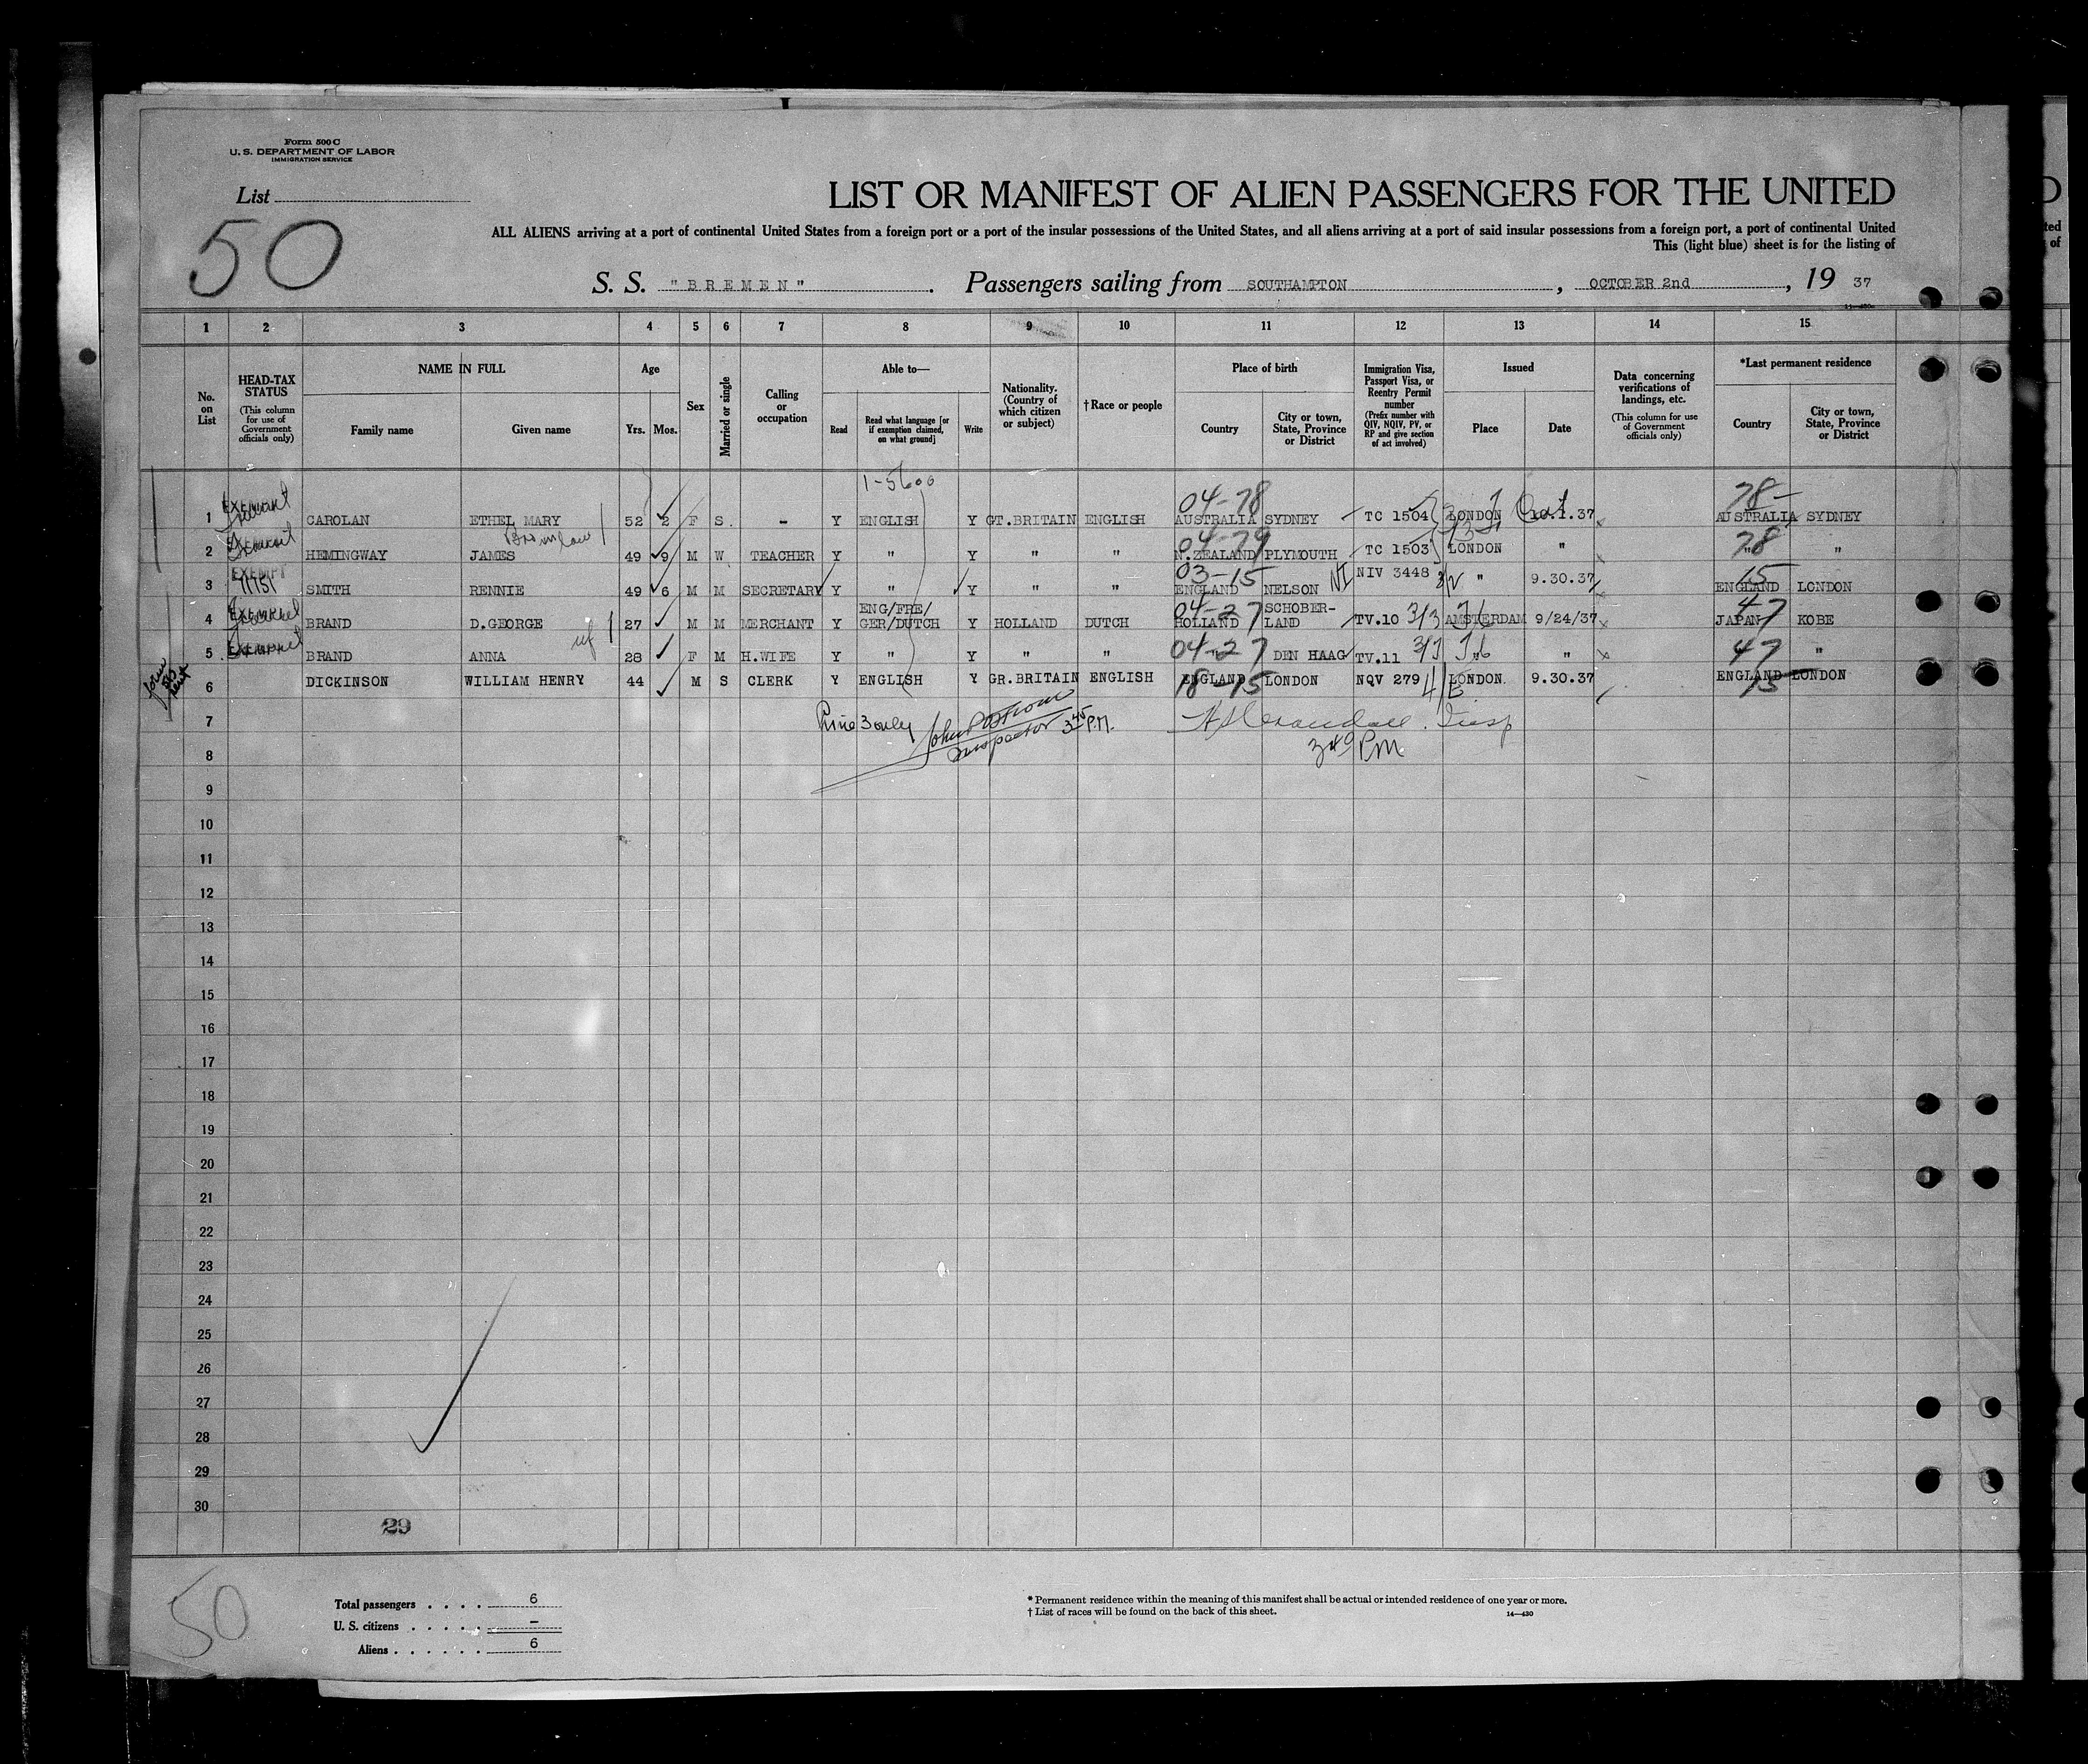 Form 500 C
U. S. DEPARTMENT OF LABOR
IMMIGRATION SERVICE
List
50
LIST OR MANIFEST OF ALIEN PASSENGERS FOR THE UNITED
ALL ALIENS arriving at a port of continental United States from a foreign port or a port of the insular possessions of the United States, and all aliens arriving at a port of said insular possessions from a foreign port, a port of continental United
This (light blue) sheet is for the listing of
S. S. "BREMEN". Passengers sailing from SOUTHAMPTON, OCTOBER 2nd, 19 37
1 2 3 4 5 6 7 8 9 10 11 12 13 14 15
No. on List
HEAD-TAX STATUS
(This column for use of Government officials only)
NAME IN FULL
Family name Given name
Age
Yrs. Mos.
Sex
Married or single
Calling or occupation
Able to—
Read
Read what language [or if exemption claimed, on what ground]
Write
Nationality. (Country of which citizen or subject)
†Race or people
Place of birth
Country
City or town, State, Province or District
Immigration Visa, Passport Visa, or Reentry Permit number
(Prefix number with QIV, NQIV, PV, or RP and give section of act involved)
Issued
Place Date
Data concerning verifications of landings, etc.
(This column for use of Government officials only)
*Last permanent residence
Country
City or town, State, Province or District
1-5600
04-78 78-
1 EXEMPT CAROLAN ETHEL MARY 52 2 F S. - Y ENGLISH Y GT.BRITAIN ENGLISH AUSTRALIA SYDNEY TC 1504 LONDON 37 AUSTRALIA SYDNEY
04-79 78
2 HEMINGWAY JAMES 49 9 M W. TEACHER Y " Y " " N.ZEALAND PLYMOUTH TC 1503 LONDON " " "
03-15 15
3 EXEMPT SMITH RENNIE 49 6 M M SECRETARY Y " Y " " ENGLAND NELSON NIV 3448 " 9.30.37 ENGLAND LONDON
04-27 47
4 BRAND D.GEORGE 27 M M MERCHANT Y ENG/FRE/ GER/DUTCH Y HOLLAND DUTCH HOLLAND SCHOBER-LAND TV.10 3/3 AMSTERDAM 9/24/37 JAPAN KOBE
04-27 47
5 BRAND ANNA wf 28 F M H.WIFE Y " Y " " " DEN HAAG TV.11 " " "
6 DICKINSON WILLIAM HENRY 44 M S CLERK Y ENGLISH Y GR.BRITAIN ENGLISH ENGLAND LONDON NQV 279 LONDON. 9.30.37 ENGLAND LONDON
18-15 15
7 Line 3 only Inspector 3 45 P.M. Insp
8 3 40 PM
9
10
11
12
13
14
15
16
17
18
19
20
21
22
23
24
25
26
27
28
29
30
29
50
Total passengers . . . . 6
U. S. citizens . . . . . –
Aliens . . . . . . 6
* Permanent residence within the meaning of this manifest shall be actual or intended residence of one year or more.
† List of races will be found on the back of this sheet.
14—430